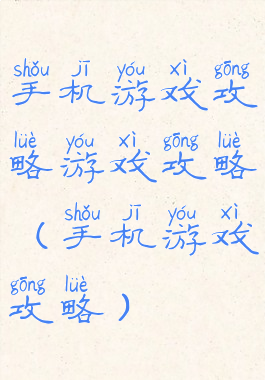 shǒu jī yóu xì gōng
手机游戏攻
lüè yóu xì gōng lüè
略游戏攻略
shǒu jī yóu xì
（手机游戏
gōng lüè
攻略）